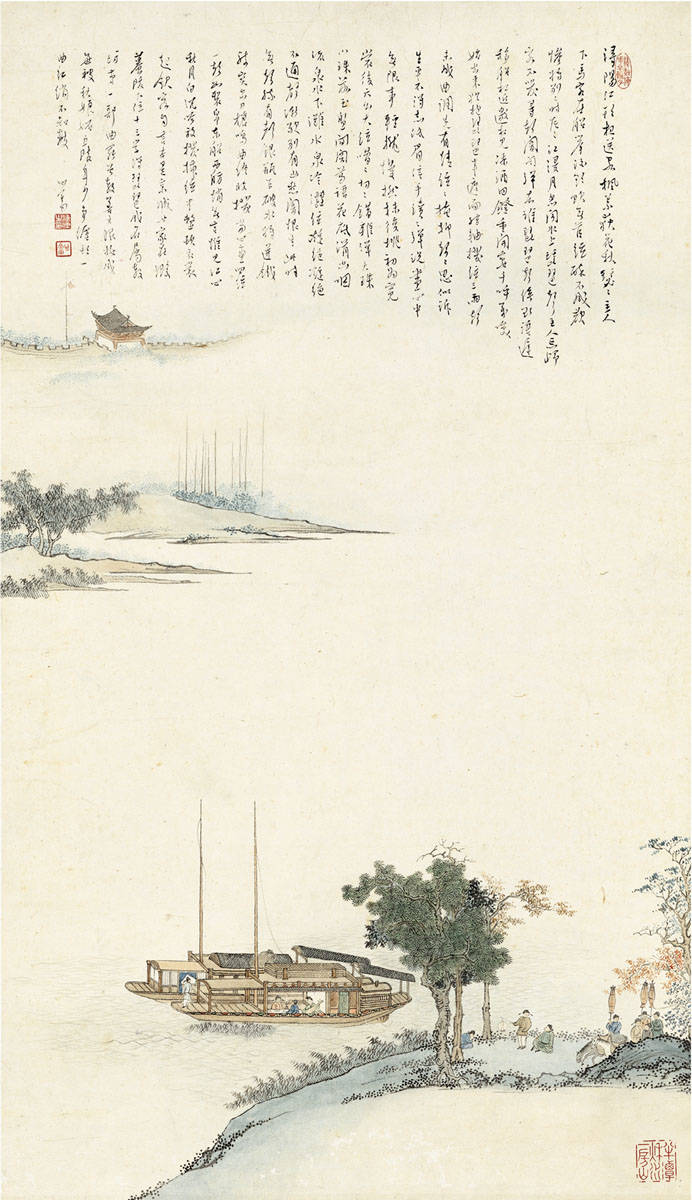 潯陽江頭夜送客楓葉荻花秋瑟瑟主人
下馬客在船舉酒欲飲無管絃醉不成歡
慘將別別時茫茫江浸月忽聞水上琵琶聲主人忘歸
客不發尋聲闇問彈者誰琵琶聲停欲語遲
移船相近邀相見添酒回鐙重開宴千呼萬喚
始出來猶抱琵琶半遮面轉軸撥絃三兩聲
未成曲調先有情絃絃掩抑聲聲思似訴
生平不得志低眉信手續續彈說盡心中
無限事輕攏慢撚抹復挑初為霓
裳後六幺大絃嘈嘈切切錯雜彈大珠
小珠落玉盤間關鶯語花底滑幽咽
流泉水下灘水泉冷澀絃凝絃凝絕
不通聲漸歇別有幽愁闇恨生此時
無聲勝有聲銀瓶乍破水漿迸鐵
騎突出刀槍鳴曲終收撥當心畫四絃
一聲如裂帛東船西舫悄無言惟見江心
秋月白沈吟放撥插絃中整頓衣裳
起斂容自言本是京城女家在蝦
蟇陵下住十三學得琵琶成名屬教
坊第一部曲罷曾教善才服妝成
每被秋娘妒五陵年少爭纏頭一
曲紅綃不知數 心畬